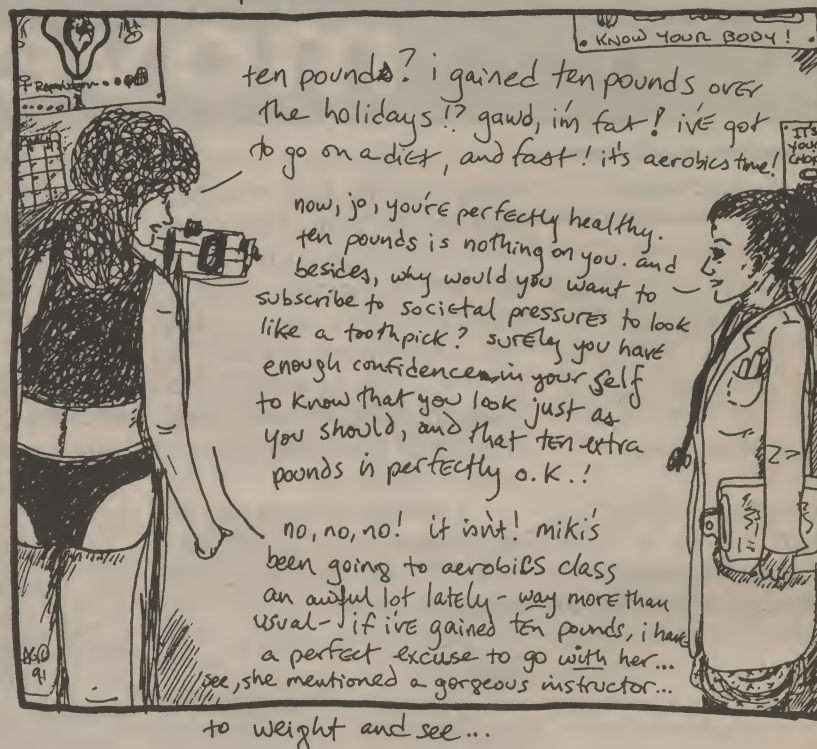 KNOW YOUR BODY!
Reproduction
IT'S
YOUR
ten pounds? i gained ten pounds over
the holidays!? gawd, i'm fat! i've got
to go on a diet, and fast! it's aerobics time!
now, jo, you're perfectly healthy.
ten pounds is nothing on you. and
besides, why would you want to
subscribe to societal pressures to look
like a toothpick? surely you have
enough confidence in your self
to know that you look just as
you should, and that ten extra
pounds is perfectly o.k.!
no, no, no! it isn't! miki's
been going to aerobics class
an awful lot lately - way more than
usual - if i've gained ten pounds, i have
a perfect excuse to go with her...
see, she mentioned a gorgeous instructor...
91
to weight and see...